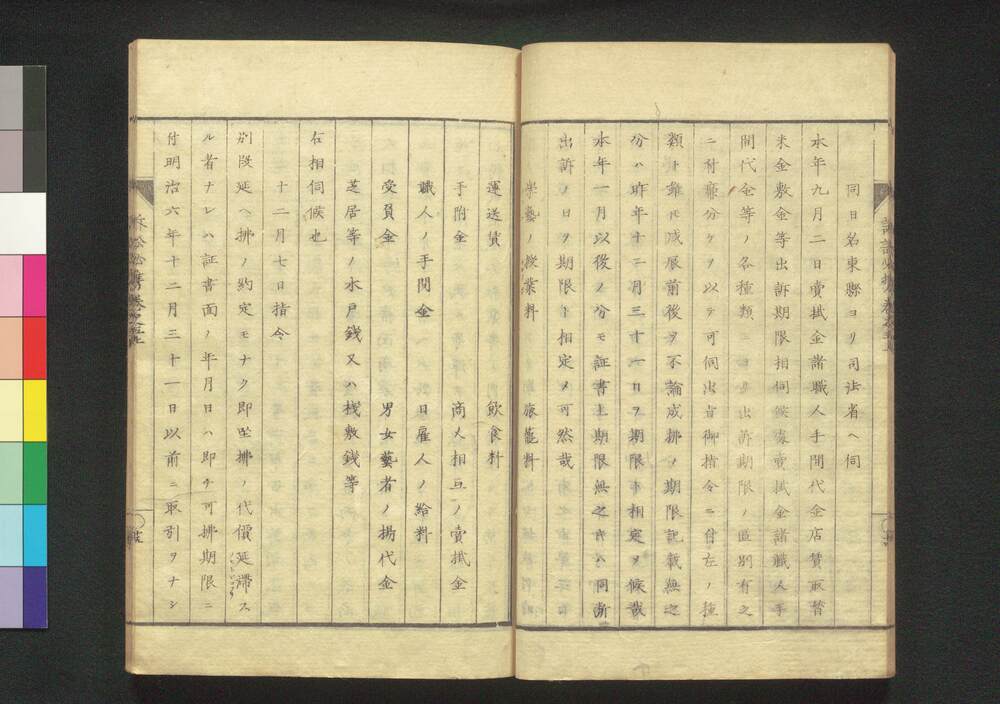 同日名東縣ヨリ司法省ヘ伺
本年九月二日賣掛金諸職人手間代金店賃取替
米金敷金等出訴期限相伺候處賣掛金諸職人手
間代金等ノ各種類ニヨリ出訴期限ノ區別有之
ニ付廉分ケヲ以テ可伺出旨御指令ニ付左ノ種
類ト雖モ戊辰前後ヲ不論成拂ノ期限記載無之
分ハ昨年十二月三十一日ヲ期限ト相定メ候哉
本年一月以後ノ分モ証書上期限無之キハ同断
出訴ノ日ヲ期限ト相定メ可然哉
學藝ノ授業料 旅籠料
運送賃 飲食料
手附金 商人相互ノ賣掛金
職人ノ手間金 日雇人ノ給料
受負金 男女藝者ノ揚代金
芝居等ノ木戸錢又ハ棧敷錢等
右相伺候也
十二月七日指令
別段延ヘ拂ノ約定モナク即坐拂ノ代價延滯ス
ル者ナレハ証書面ノ年月日ハ即チ可拂期限ニ
付明治六年十二月三十一日以前ニ取引ヲナシ